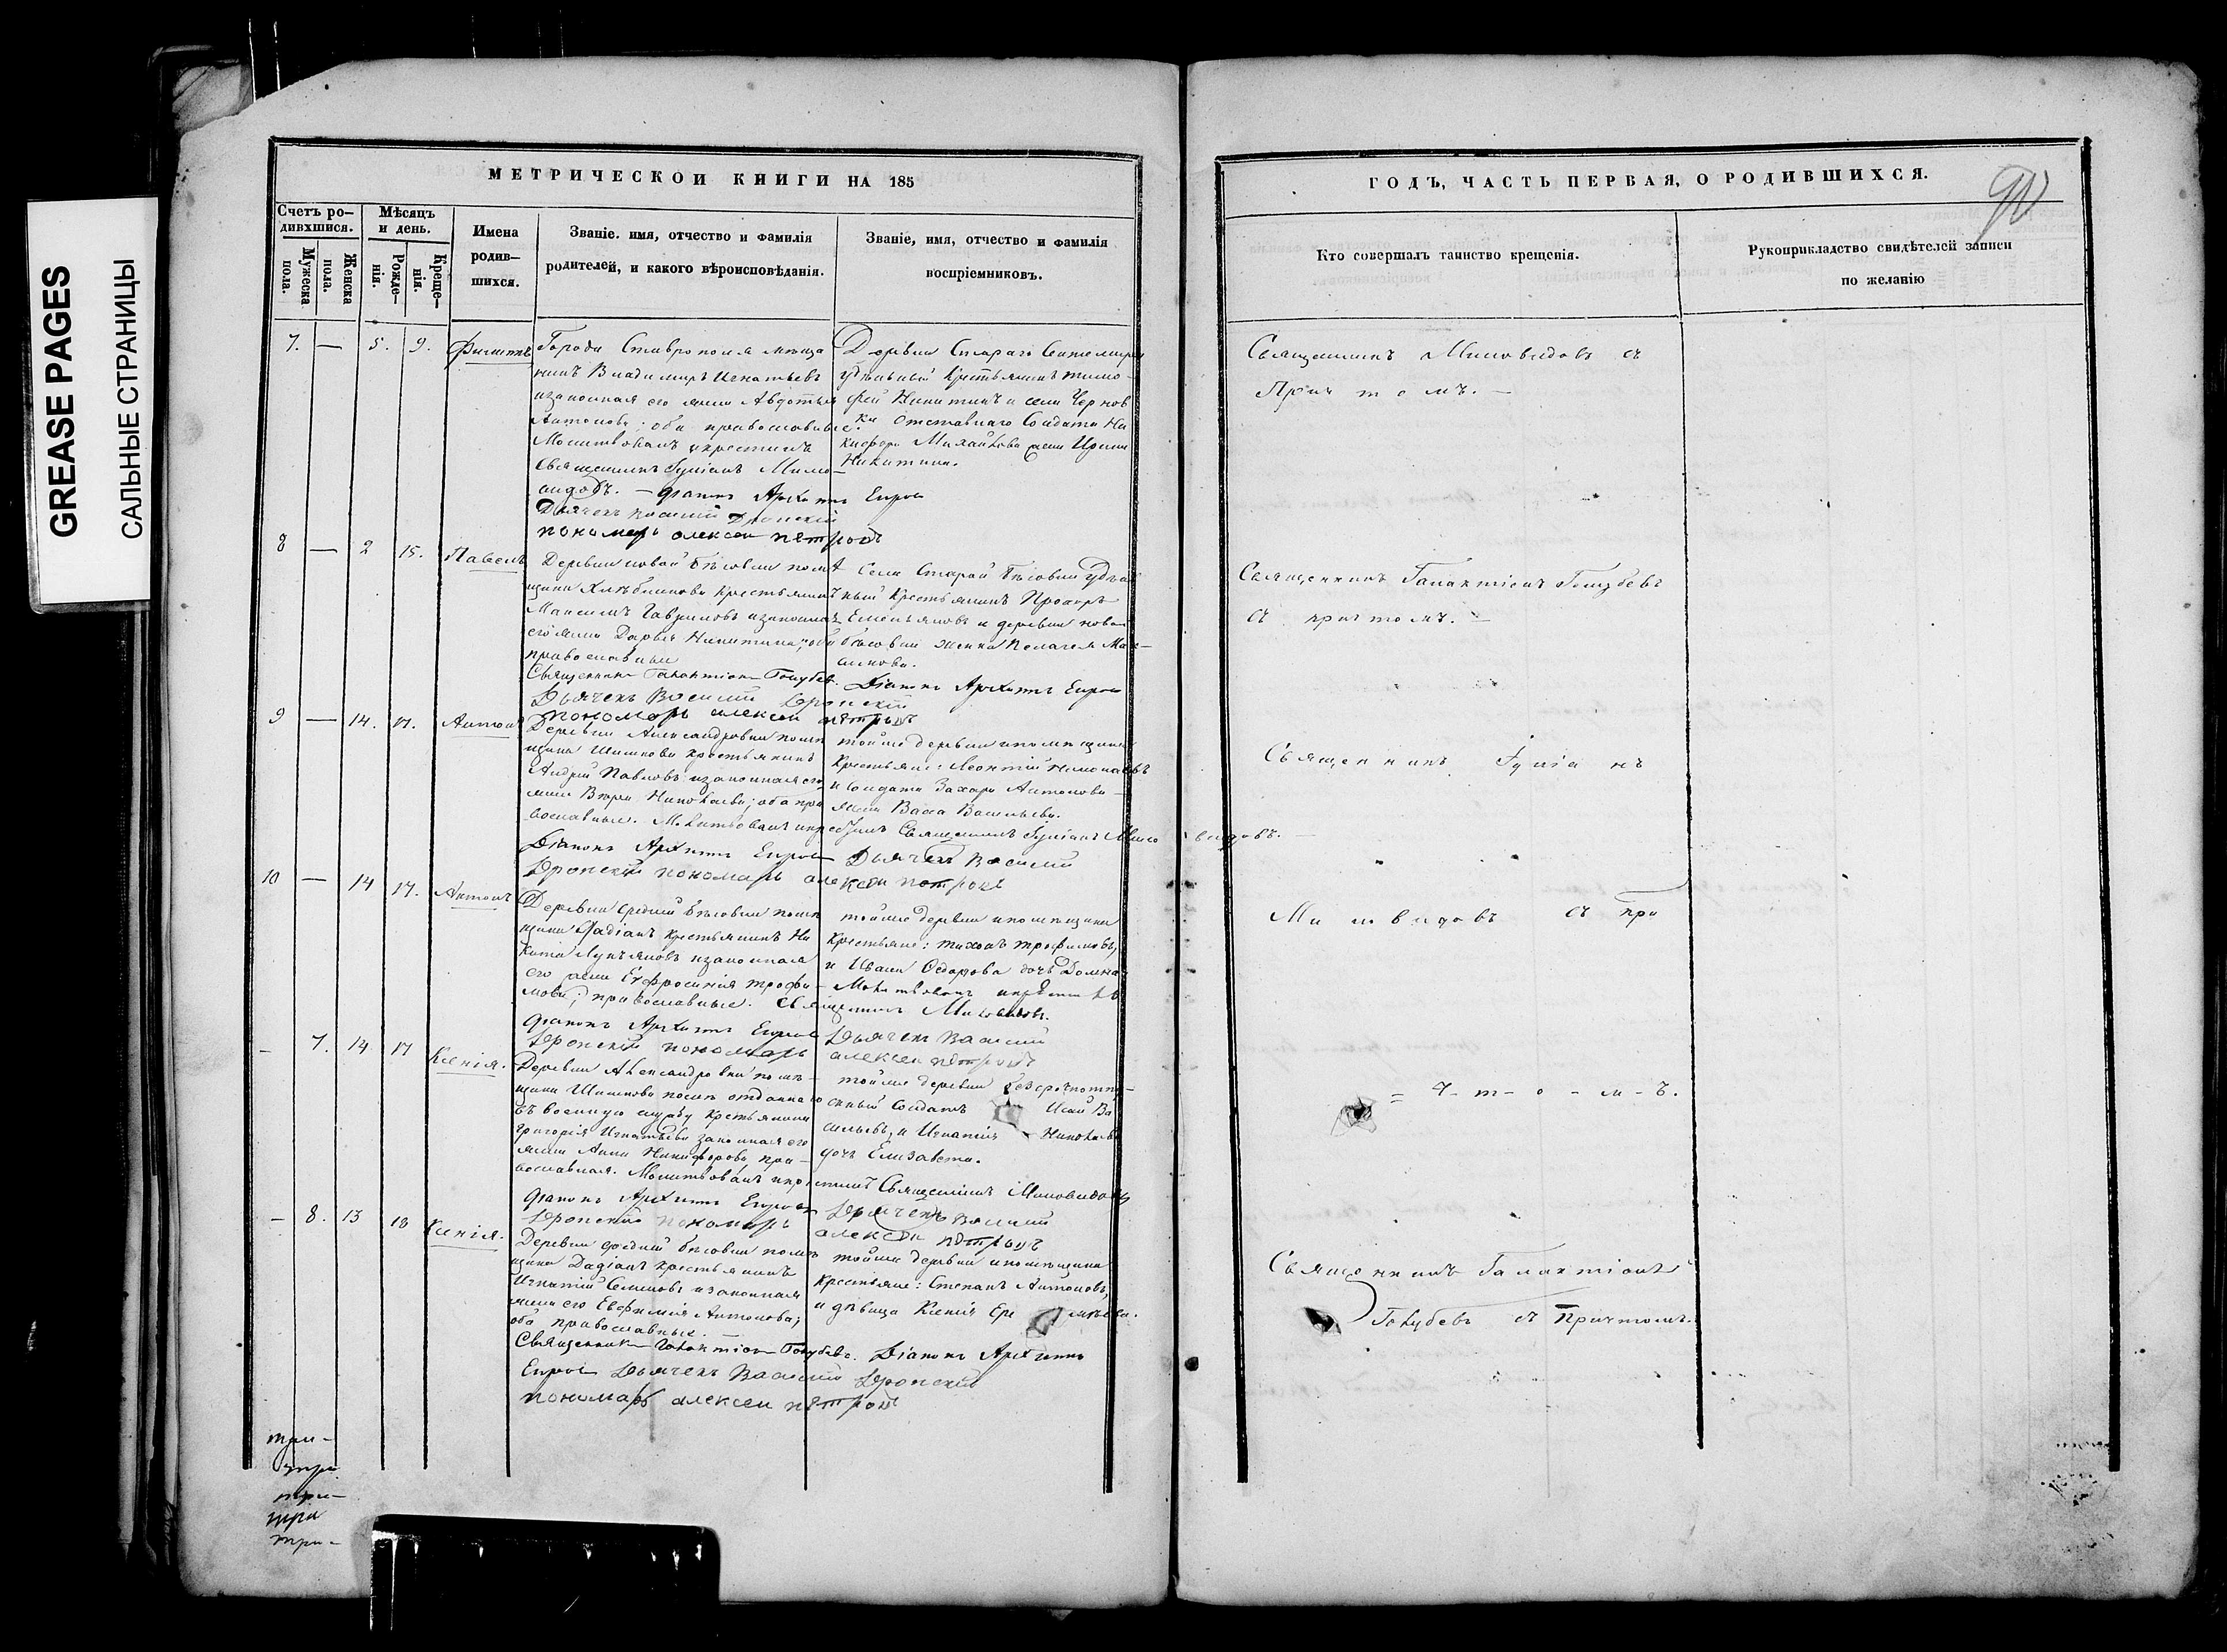 GREASE PAGES
САЛЬНЫЕ СТРАНИЦЫ
МЕТРИЧЕСКОЙ КНИГИ НА 185
Счетъ ро-
дившихся.
Мѣсяцъ
и день.
Мужеска
пола.
Женска
пола.
Рожде-
нія.
Креще-
нія.
Имена
родив-
шихся.
Званіе. имя, отчество и фамилія
родителей, и какого вѣроисповѣданія.
Званіе, имя, отчество и фамилія
воспріемниковъ.
7. — 5. 9. Филиппъ
Города Ставрополя мѣща
нинъ Владимиръ Игнатьевъ
изаконная его жена Авдотья
Антонова; оба православные.
Молитвовалъ икрестилъ
Священникъ Іуліанъ Мило-
видовъ. — Діаконъ Архипъ Егоров
Дьячекъ Василий Дронский
пономарь алексеи петровъ
Деревни Стараго
удѣльный Крестьянинъ тимо-
фей Никитинъ и села Чернов
ки отставнаго Солдата Ни
кифора Михайлова жена Ирина
Никитина.
8 — 2 15. Павелъ
Деревни новой Бѣсовки помѣ
щика Хлѣбникова крестьянинъ
Максимъ Гавриловъ изаконная
его жена Дарья Никитина; оба
православные
Священник Галактион Голубев. Діаконъ Архипъ Егоров
Дьячекъ Василий Дронский
пономарь алексеи петровъ
Села Старой Бѣсовки удѣль
ный Крестьянинъ Прохоръ
Емельяновъ и деревни новой
бѣсовки женка Пелагея Мак-
симова.
9 — 14. 17. Антонъ
Деревни Александровки помѣ
щика Шишкова крестьянинъ
Андрей Павловъ изаконная его
жена Вѣра Николаева; оба пра
вославные. Молитвовалъ икрестилъ Священникъ Іуліанъ Мило видовъ. —
Діаконъ Архипъ Егоров Дьячекъ Василий
Дронский пономарь алексеи петровъ
тойже деревни ипомѣщика
Крестьяне: Леонтій Николаевъ
и солдата Захара Антонова
жена Васса Васильева.
10 — 14 17. Антонъ
Деревни средней Бѣсовки помѣ
щика Дадіанъ крестьянинъ Ни
кита Лукьяновъ изаконная
его жена Евфросинія трофи-
мова; православные. Священникъ Миловидовъ.
Діаконъ Архипъ Егоров Дьячекъ Василий
Дронский пономарь алексеи петровъ
тойже деревни ипомѣщика
крестьяне: тихонъ трофимовъ,
и Ивана Федорова дочь Домна
Молитвовалъ икрестилъ
— 7. 14 17 Ксенія.
Деревни Александровки помѣ-
щика Шишкова послѣ отданнаго
въ военную службу крестьянина
Григорія Игнатьева законная его
жена Анна Никифорова пра-
вославная. Молитвовалъ икрестилъ Священникъ Миловидовъ
Діаконъ Архипъ Егоров Дьячекъ Василий
Дронский пономарь алексеи петровъ
тойже деревни безсрочноотпу-
скный солдатъ Исай Ва
сильевъ, и Игнатія Николаева
дочь Елизавета.
— 8. 13 18 Ксенія.
Деревни средней бѣсовки помѣ
щика Дадіанъ крестьянинъ
Игнатій Семеновъ изаконная
жена его Евфимія Антонова;
оба православные. —
Священник Галактион Голубев. Діаконъ Архипъ
Егоров Дьячекъ Василий Дронский
пономарь алексеи петровъ
тойже деревни ипомѣщика
крестьяне: Степанъ Антоновъ,
и дѣвица Ксенія
три-
три
три-
три
три-
ГОДЪ, ЧАСТЬ ПЕРВАЯ, О РОДИВШИХСЯ.
90
Кто совершалъ таинство крещенія.
Рукоприкладство свидѣтелей записи
по желанію
Священникъ Миловидовъ съ
Причтомъ. —
Священникъ Галактіонъ Голубевъ
съ причтомъ. —
Священникъ Іуліанъ
Миловидовъ съ при
= ч-т-о-м-ъ.
Священникъ Галактіонъ
Голубевъ съ Причтомъ.